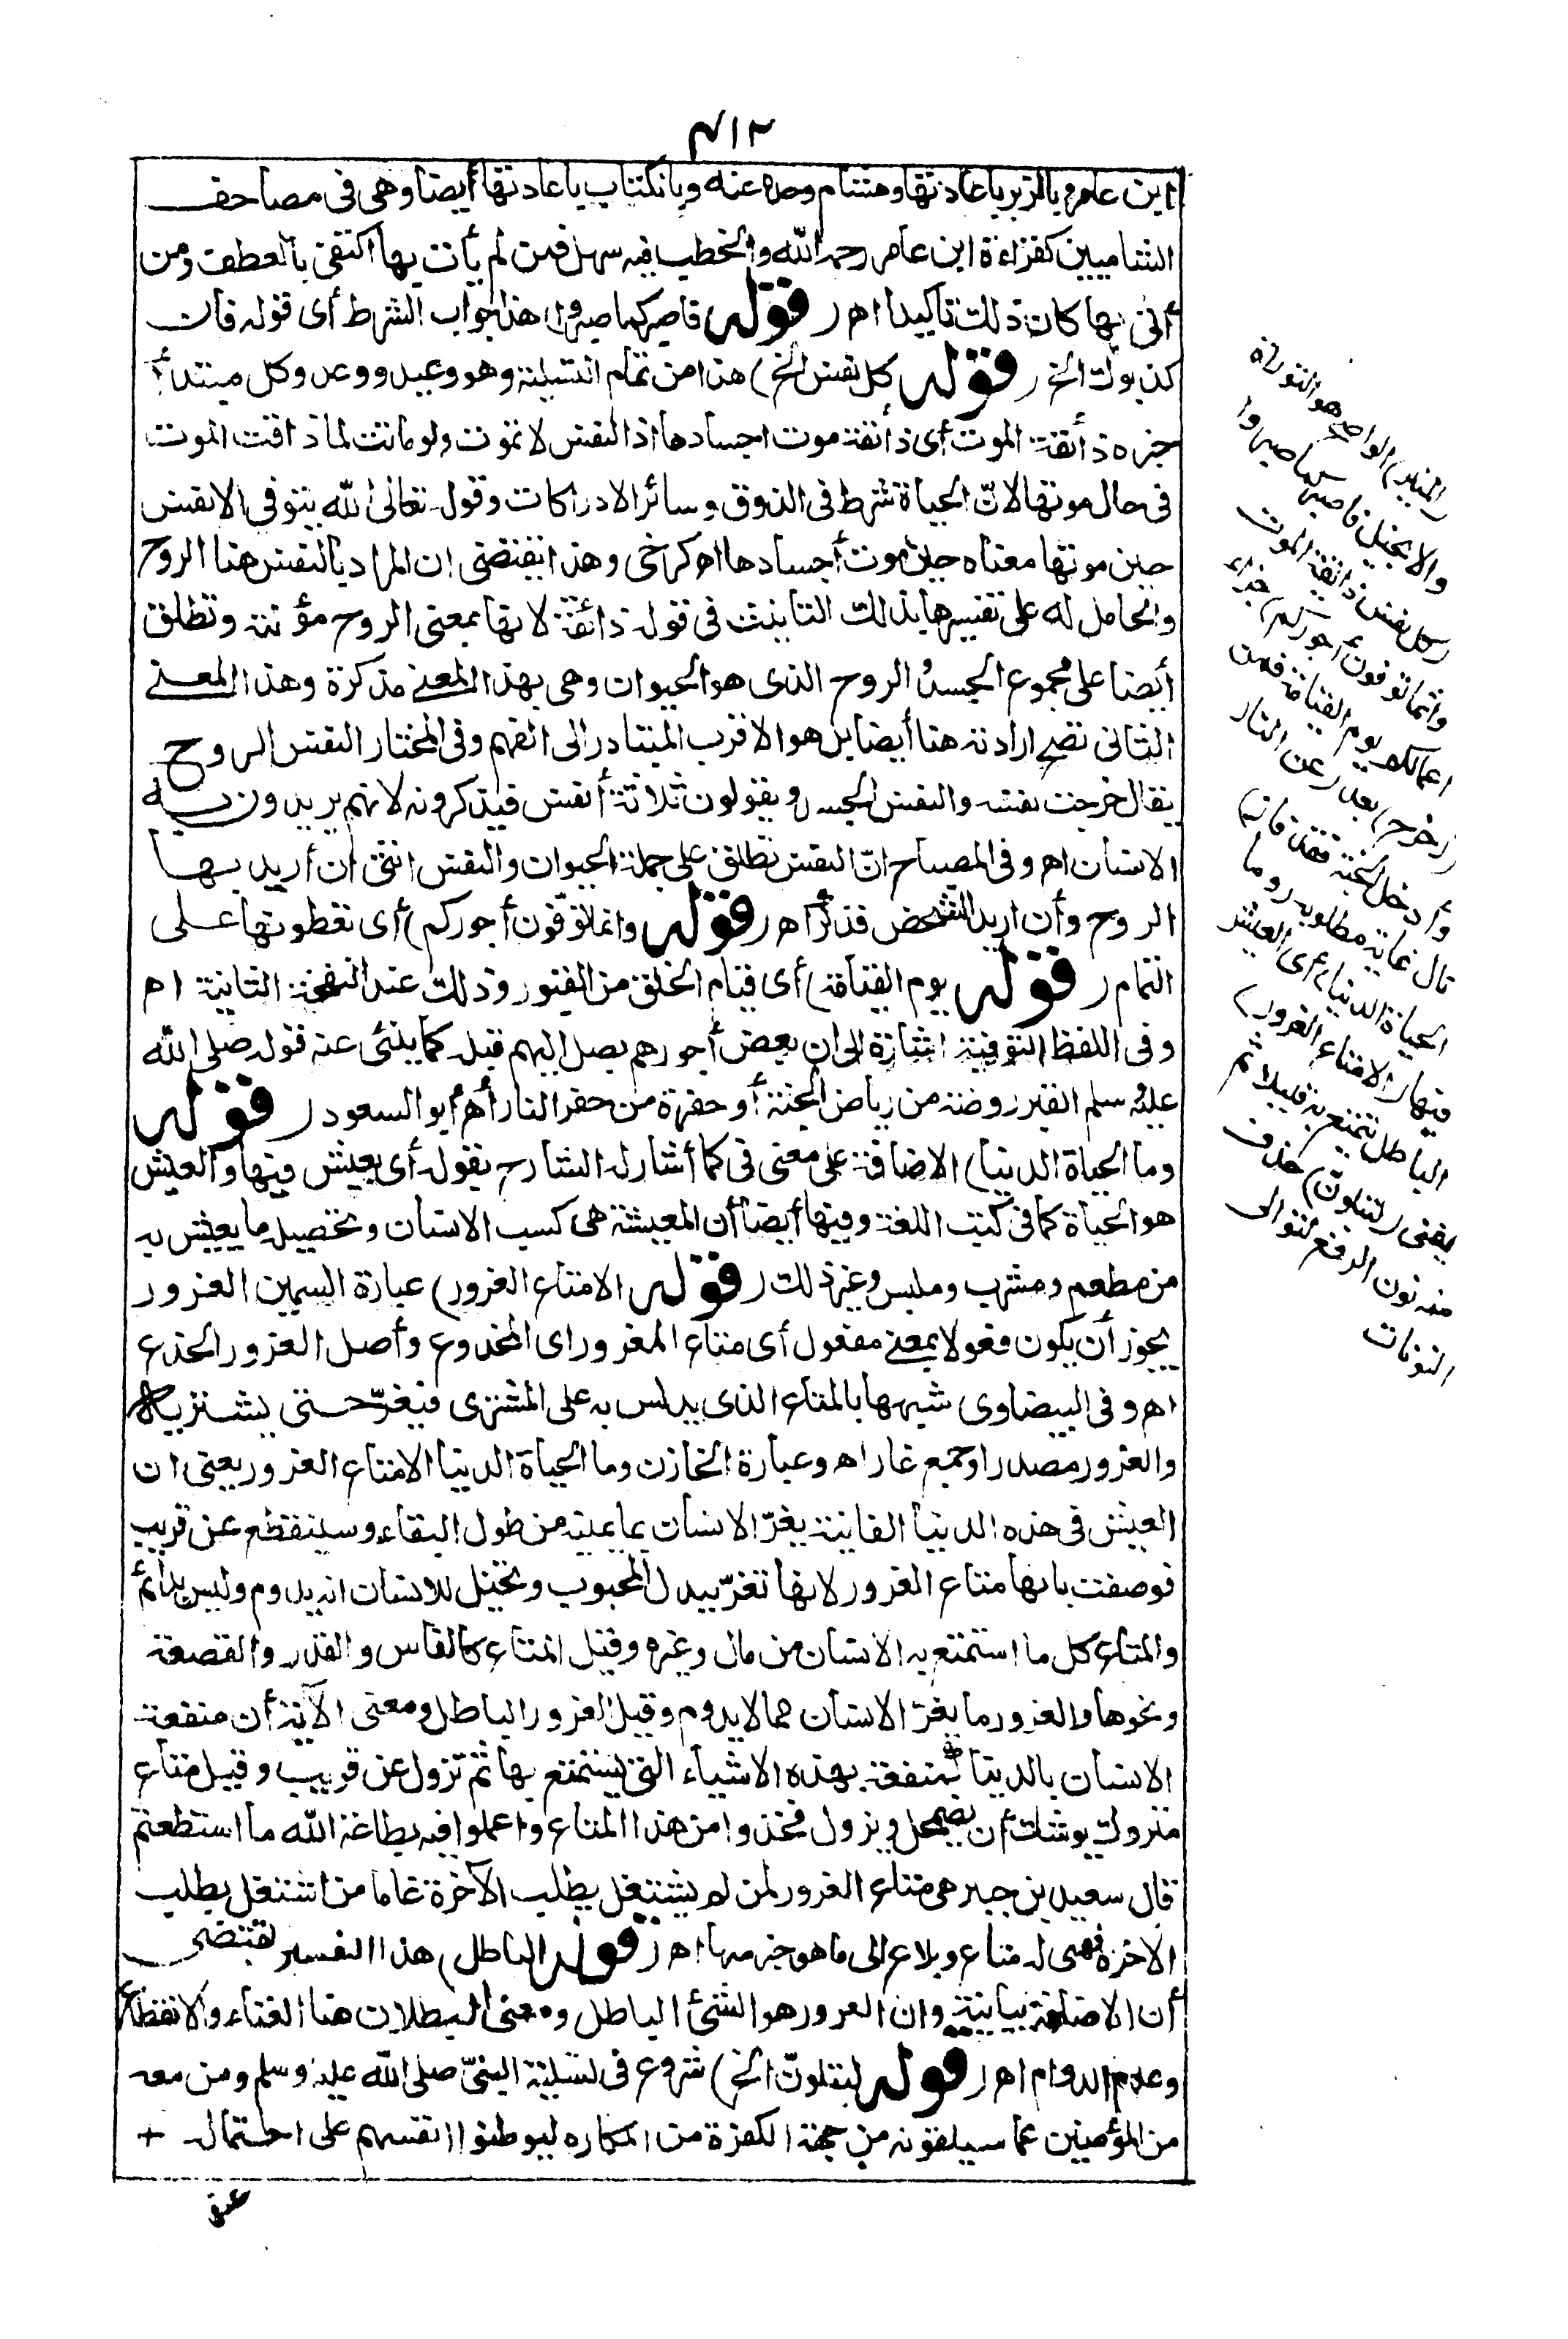 ٤١٢
ابن عامر وبالزبر باعادتها وهشام وحده عنه وبالكتاب باعادتها أيضا وهى فى مصاحف
الشاميين كقراءة ابن عامر رحمه الله والخطب فيه سهل فمن لم يأت بها اكتفى بالعطف ومن
أتى بها كان ذلك تأكيدا اهـ (قوله فاصبر كما صبروا) هذا جواب الشرط أى قوله فان
كذبوك الخ (قوله كل نفس الخ) هذا من تمام التسلية وهو وعيد ووعد وكل مبتدأ
خبره ذائقة الموت أى ذائقة موت اجسادها اذ النفس لا تموت ولو ماتت لما ذاقت الموت
فى حال موتها لانّ الحياة شرط فى الذوق وسائر الادراكات وقوله تعالى الله يتوفى الانفس
حين موتها معناه حين موت أجسادها اهـ كرخى وهذا يقتضى ان المراد بالنفس هنا الروح
والحامل له على تفسيرها بذلك التانيث فى قوله ذائقة لانها بمعنى الروح مؤنثة وتطلق
أيضا على مجموع الجسد والروح الذى هو الحيوان وهى بهذا المعنى مذكرة وهذا المعنى
الثانى تصح ارادته هنا أيضا بل هو الاقرب المتبادر الى الفهم وفى المختار النفس الروح
يقال خرجت نفسه والنفس الجسد ويقولون ثلاثة أنفس فيذكرونه لانهم يريدون به
الانسان اهـ وفى المصباح انّ النفس تطلق على جملة الحيوان والنفس انثى ان أريد بها
الروح وأن اريد الشخص فذكر اهـ (قوله وانما توفّون أجوركم) أى تعطونها على
التمام (قوله يوم القيامة) أى قيام الخلق من القبور وذلك عند النفخة الثانية اهـ
وفى اللفظ التوفية اشارة الى ان بعض أجورهم يصل اليهم قبله كما ينبئ عنه قوله صلى الله
عليه وسلم القبر روضة من رياض الجنة أو حفرة من حفر النار أهـ أبو السعود (قوله
وما الحياة الدنيا) الاضافة على معنى فى كما أشار له الشارح بقوله أى يعيش فيها والعيش
هو الحياة كما فى كتب اللغة وفيها أيضا أن المعيشة هى كسب الانسان وتحصيله ما يعيش به
من مطعم ومشرب وملبس وغير ذلك (قوله الا متاع الغرور) عبارة السمين الغرور
يجوز أن يكون فعولا بمعنى مفعول أى متاع المغرور اى المخدوع وأصل الغرور الخدع
اهـ وفى البيضاوى شبهها بالمتاع الذى يدلس به على المشترى فيغرّ حتى يشتريه
والغرور مصدر او جمع غار اهـ وعبارة الخازن وما الحياة الدنيا الا متاع الغرور يعنى ان
العيش فى هذه الدنيا الفانية يغرّ الانسان بما يمنيه من طول البقاء وسينقطع عن قريب
فوصفت بانها متاع الغرور لانها تغرّ ببذل المحبوب وتخيل للانسان انه يدوم وليس بدائم
والمتاع كل ما استمتع به الانسان من مال وغيره وقيل المتاع كالفاس والقدر والقصعة
ونحوها والغرور ما يغرّ الانسان مما لا يدوم وقيل الغرور الباطل ومعنى الآية أن منفعة
الانسان بالدنيا كمنفعة بهذه الاشياء التى يستمتع بها ثم تزول عن قريب وقيل متاع
متروك يوشك أن يضمحل ويزول فخذوا من هذا المتاع واعملوا فيه بطاعة الله ما استطعتم
قال سعيد بن جبير هى متاع الغرور لمن لم يشتغل بطلب الآخرة فاما من اشتغل بطلب
الاخرة فهى له متاع وبلاغ الى ما هو خير منها اهـ (قوله الباطل) هذا التفسير يقتضى
أن الاضافة بيانية وان الغرور هو الشئ الباطل ومعنى البطلان هنا الفناء والانقطاع
وعدم الدوام اهـ (قوله لتبلونّ الخ) شروع فى تسلية النبىّ صلى الله عليه وسلم ومن معه
من المؤمنين عما سيلقونه من جهة الكفرة من المكاره ليوطنوا انفسهم على احتماله
المنير) الواضح هو التوراة
والانجيل فاصبر كما صبروا
(كل نفس ذائقة الموت
وانما توفون أجوركم) جزاء
اعمالكم يوم القيامة فمن
زحزح) بعد (عن النار
وأدخل الجنة فقد فاز)
نال غاية مطلوبه (وما
الحياة الدنيا) أى العيش
فيها (الا متاع الغرور)
الباطل يتمتع به قليلا ثم
يفنى (لتبلونّ) حذف
منه نون الرفع لتوالى
النونات